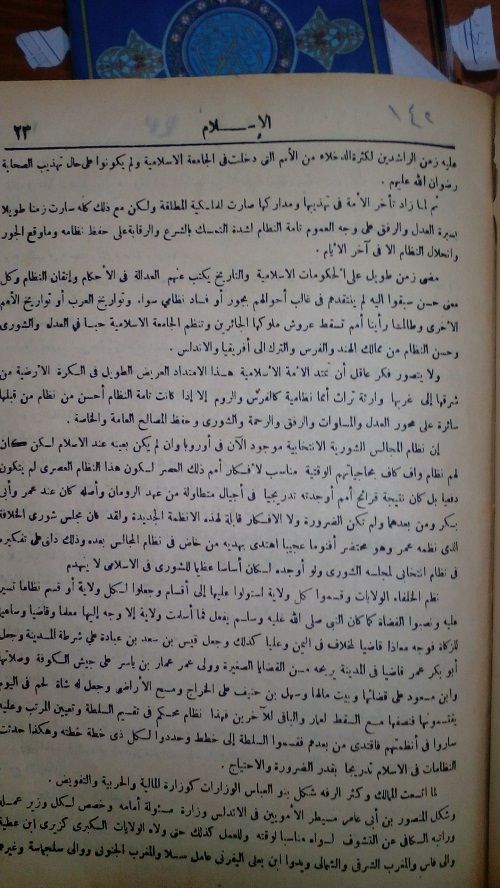 ١٤٢
٢٣
الإسلام
عليه زمن الراشدين لكثرة الدخلاء من الأمم التى دخلت فى الجامعة الاسلامية ولم يكونوا على حال تهذيب الصحابة
رضوان الله عليهم .
ثم لما زاد تأخر الأمة فى تهذيبها ومداركها صارت لملكية المطلقة ولكن مع ذلك كله سارت زمنا طويلا
بسيرة العدل والرفق على وجه العموم تامة النظام لشدة التمسك بالشرع والرقابة على حفظ نظامه وما وقع الجور
وانحلال النظام الا فى آخر الأيام .
مضى زمن طويل على الحكومات الاسلامية والتاريخ يكتب عنهم العدالة فى الأحكام وإتقان النظام وكل
معنى حسن سبقوا اليه لم ينتقدهم فى غالب أحوالهم بجور أو فساد نظامي سواء وتواريخ العرب أو تواريخ الأمم
الأخرى وطالما رأينا أمم تسقط عروش ملوكها الجائرين وتنظم الجامعة الاسلامية حبا فى العدله والشورى
وحسن النظام من ممالك الهند والفرس والترك الى أفريقيا والاندلس .
ولا يتصور فكر عاقل أن تمتد الأمة الاسلامية هذا الامتداد العريض الطويل فى السكرة الأرضية من
شرقها إلى غربها وارثة تراث أمما نظامية كالفرس والروم إلا إذا كانت تامة النظام أحسن من نظام من قبلها
سائرة على محور العدل والمساوات والرفق والرحمة والشورى وحفظ المصالح العامة والخاصة .
إن نظام المجالس الشورية الانتخابية موجود الآن فى أوروبا وان لم يكن بعينه عند الاسلام لسكن كان
لهم نظام واف كاف بحاجياتهم الوقتية مناسب لأفكار أمم ذلك العصر لسكون هذا النظام العصرى لم يتكون
دفعيا بل كان نتيجة قرائح أمم أوجدته تدريجيا فى أجيال متطاولة من عهد الرومان وأصله كان عند عمر وأبى
بكر ومن بعدهما ولم تكن الضرورة ولا الافكار قابلة لهذه الانظمة الجديدة ولقد كان مجلس شورى الخلافة
الذى نظمه عمر وهو محتضر عجيبا اهتدى بهديه من خاض فى نظام المجالس بعده وذلك دال على تفكيره
فى نظام انتخابى لمجلسه الشورى ولو أوجده لسكان أساسا عظيما للشورى فى الاسلامى لا ينهدم
نظم الخلفاء الولايات وقسموا كل ولاية استولوا عليها إلى أقسام وجعلوا لسكل ولاية أو قسم نظاما تسير
عليه ونصبوا القضاة كما كان النبى صلى الله عليه وسلم يفعل فما أسلمت ولاية إلا وجه إليها معلما وقاضيا وساعيا
للزكاة فوجه معاذا قاضيا لمخلاف فى اليمن وعليا كذلك وجعل قيس بن سعد بن عبادة على شرطة المدينة وجعل
أبو بكر عمر قاضيا فى المدينة يريحه من القضايا الصغيرة وولى عمر عمار بن ياسر على جيش السكوفة وصلاتها
وابن مسعود على قضائها وبيت مالها وسهل بن حنيف على الخراج ومسح الأراضى وجعل له شاة لهم فى اليوم
يقتسمونها فنصفها مع السقط لعمار والباقى للآخرين فهذا نظام محكم فى تقسيم السلطة وتعيين المرتب وعليه
ساروا فى أنظمتهم فاقتدى من بعدهم فقسموا السلطة إلى خطط وحددوا لسكل ذى خطة خطته وهكذا حدثت
النظامات فى الاسلام تدريجا بقدر الضرورة والاحتياج .
لما اتسعت الممالك وكثر الرفه شكل بنو العباس الوزارات كوزارة المالية والحربية والتفويض .
وشكل المنصور بن أبى عامر مسيطر الأمويين فى الاندلس وزارة مسئولة أمامه وخصص لسكل وزير عمله
وراتبه السكافى عن التشوف لسواه مناسبا لوقته وللعمل كذلك حتى ولاة الولايات السكبرى كزيرى ابن عطية
والى فاس والمغرب الشرقى والشمالى ويدوا ابن يعلى اليفرنى عامل سلا والمغرب الجنوبى ووالى سلجماسة وغيرهم